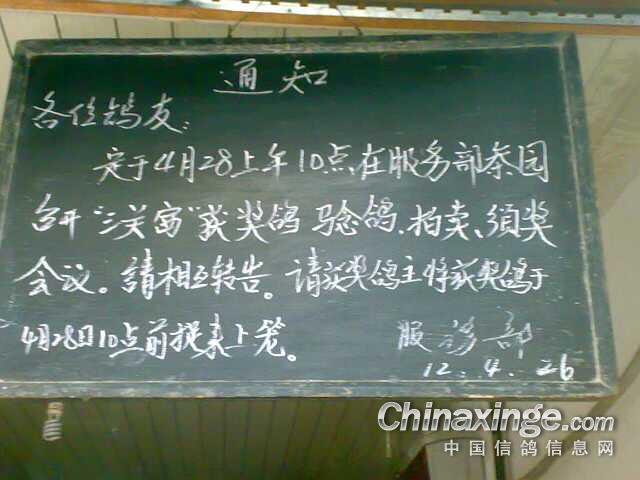 通知
各位鸽友:
定于4月28上午10点在服务部茶园
召开“三关富”获奖鸽 验鸽、拍卖、颁奖
会议。請相互转告。请获奖鸽主将获奖鸽于
4月28日10点前提来上笼。
服务部
12.4.26
Chinaxinge.com
中国信鸽信息网